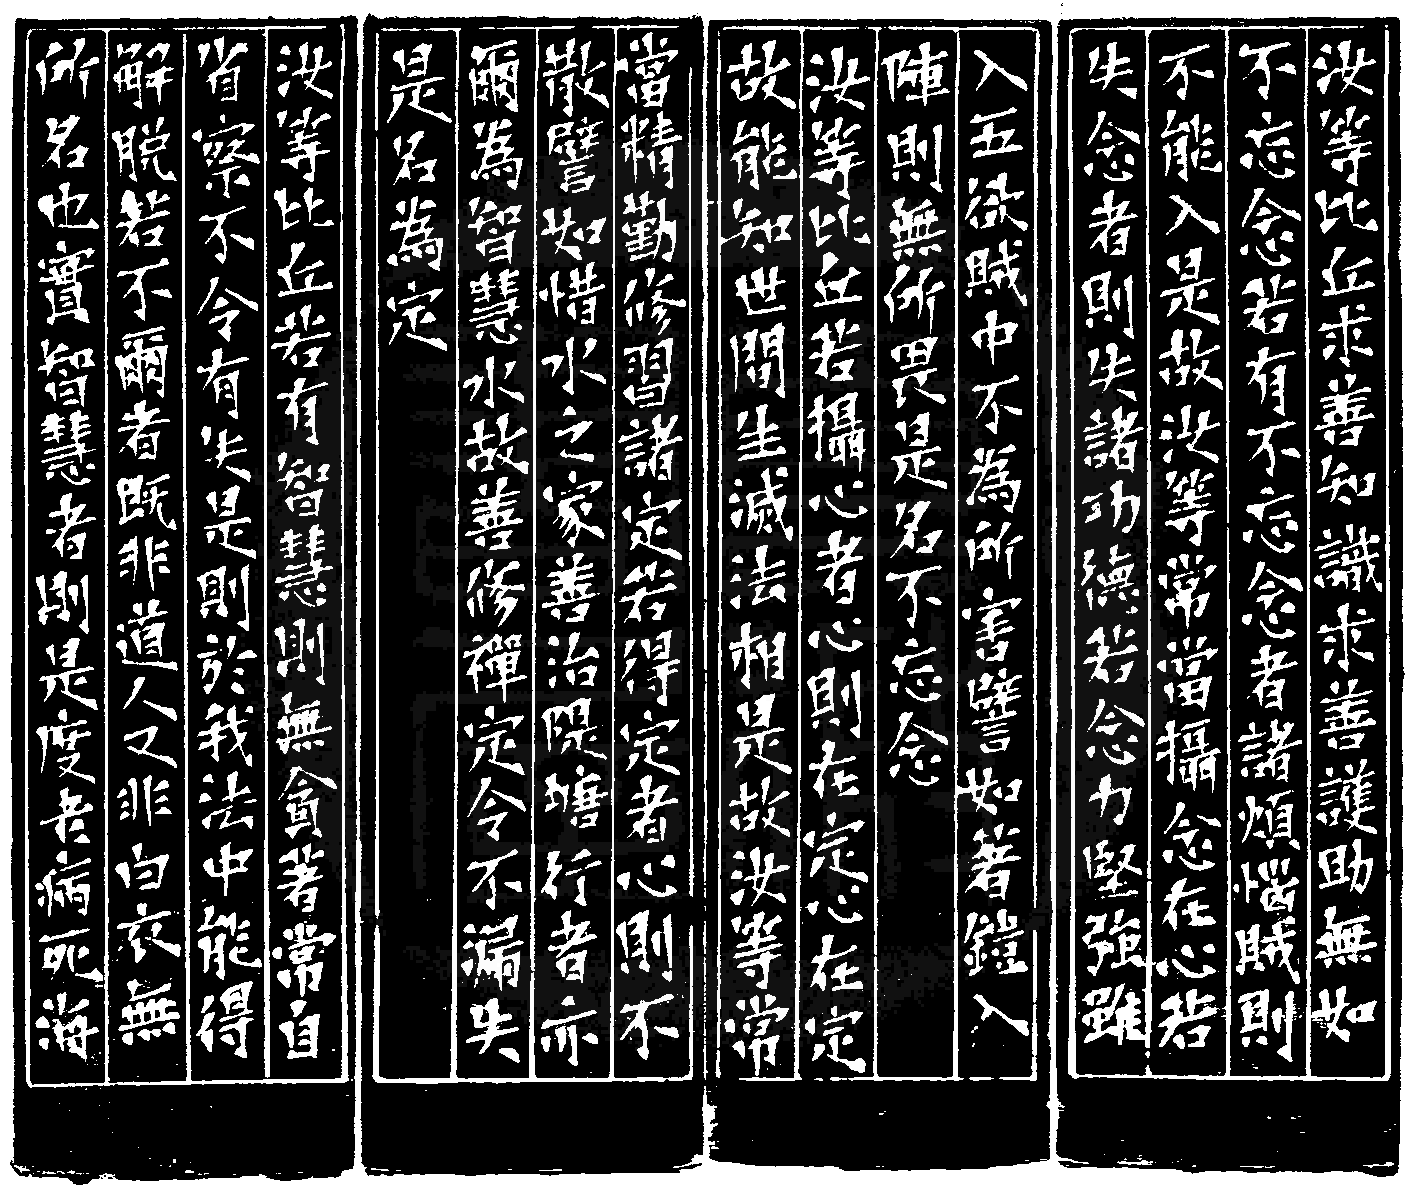 汝等比丘求善知識求善護助無如
不忘念若有不忘念者諸煩惱賊則
不能入是故汝等常當攝念在心若
失念者則失諸功德若念力堅強雖
入五欲賊中不為所害譬如著鎧入
陣則無所畏是名不忘念
汝等比丘若攝心者心則在定心在定
故能知世間生滅法相是故汝等常
當精勤修習諸定若得定者心則不
散譬如惜水之家善治隄塘行者亦
爾為智慧水故善修禪定令不漏失
是名為定
汝等比丘若有智慧則無貪著常自
省察不令有失是則於我法中能得
解脫若不爾者既非道人又非白衣無
所名也實智慧者則是度老病死海